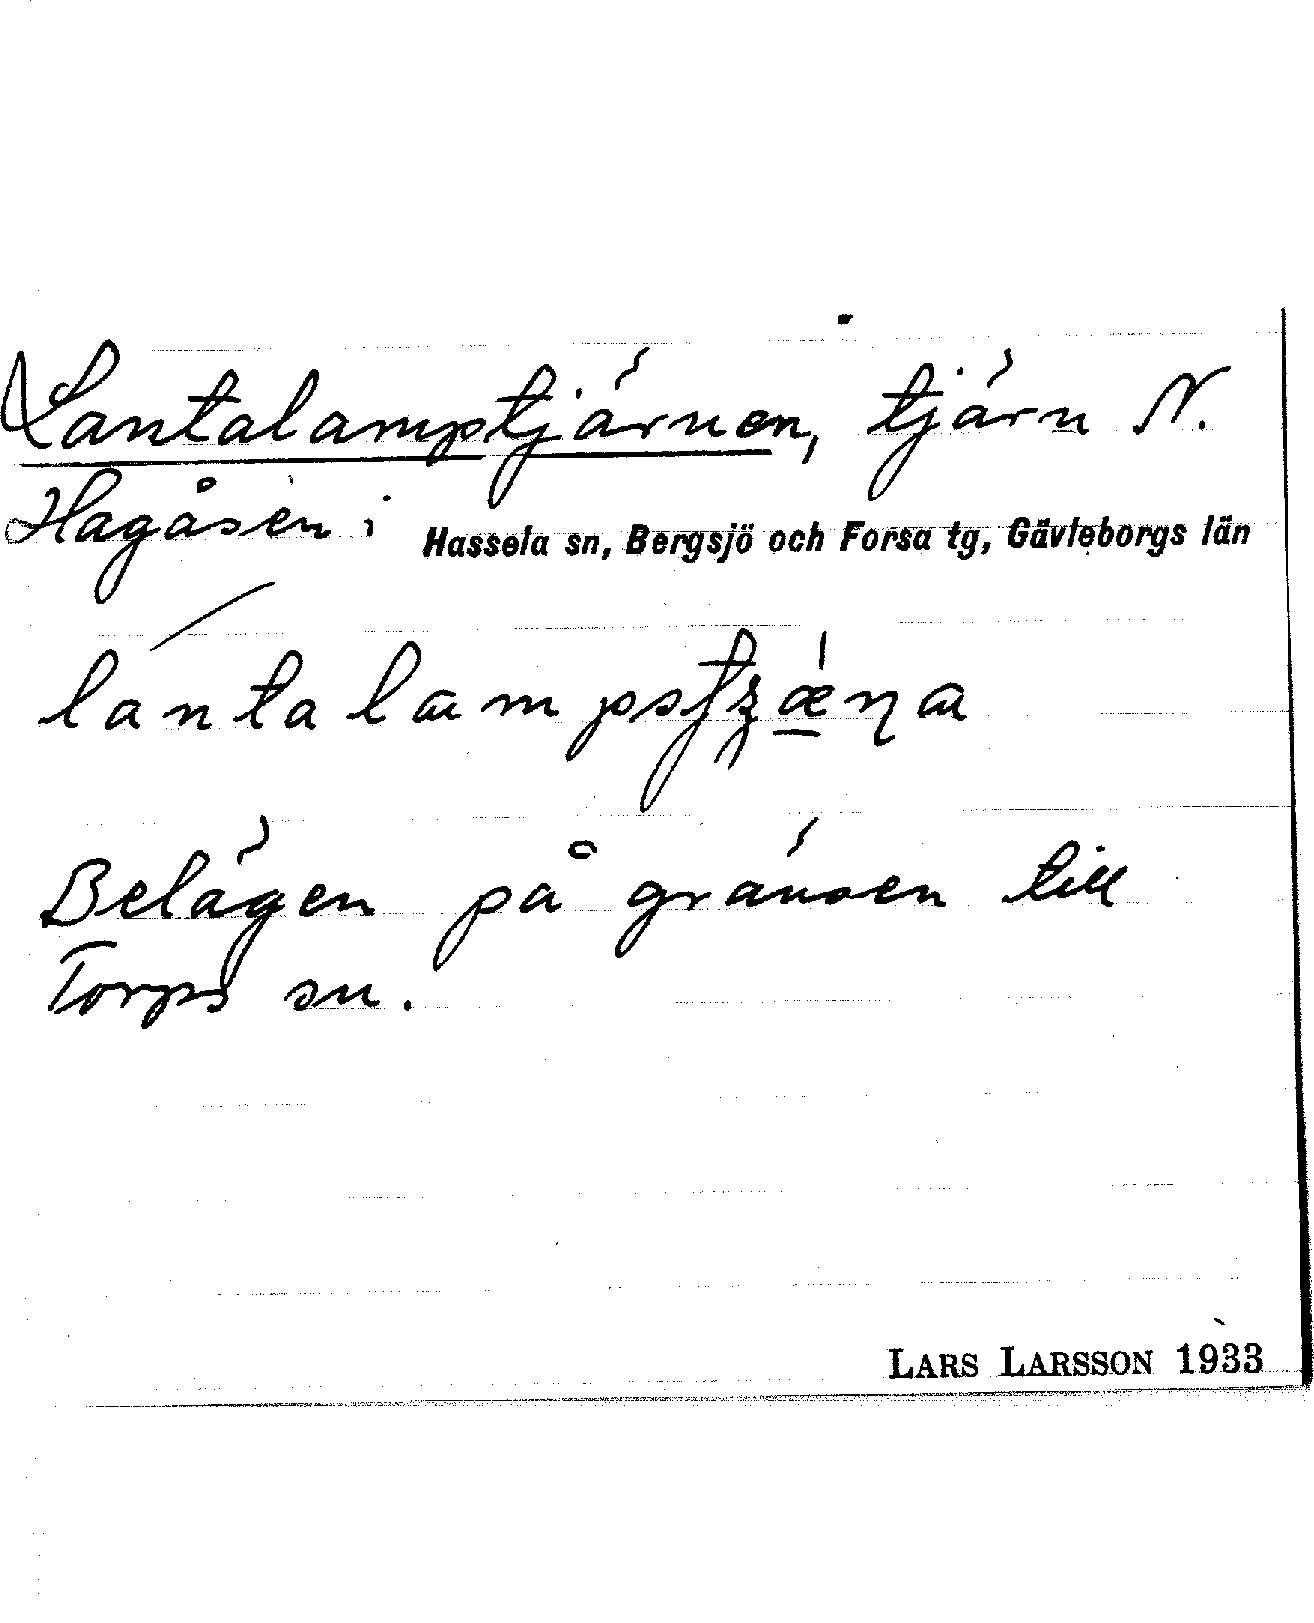 Lantalamptjärnen, tjärn N.
Hagåsen i Hassela sn, Bergsjö och Forsa tg, Gävleborgs län
Belägen på gränsen till
Torps sn.
LARS LARSSON 1933